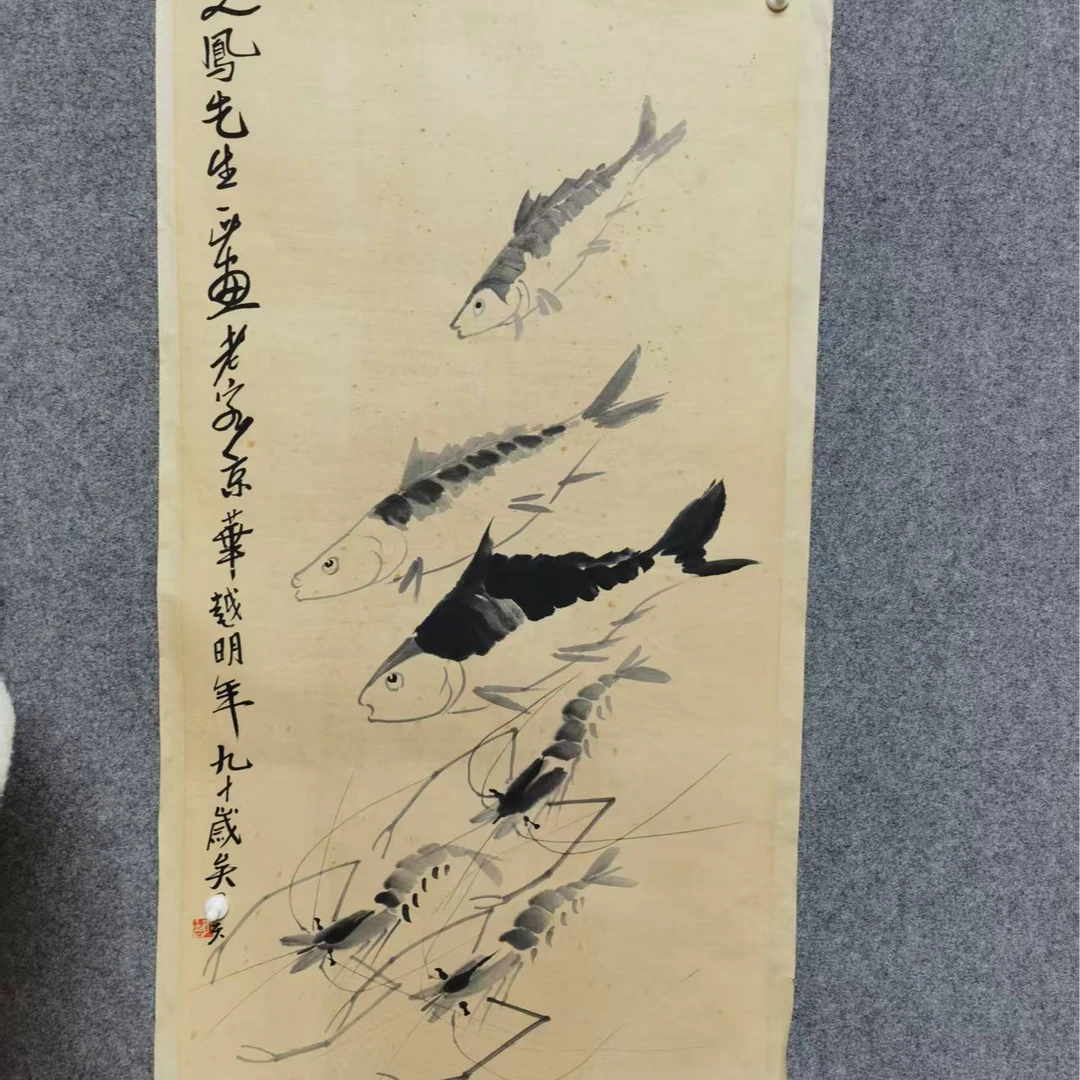 鳳先生一正畫老客京華越明年九十歲矣